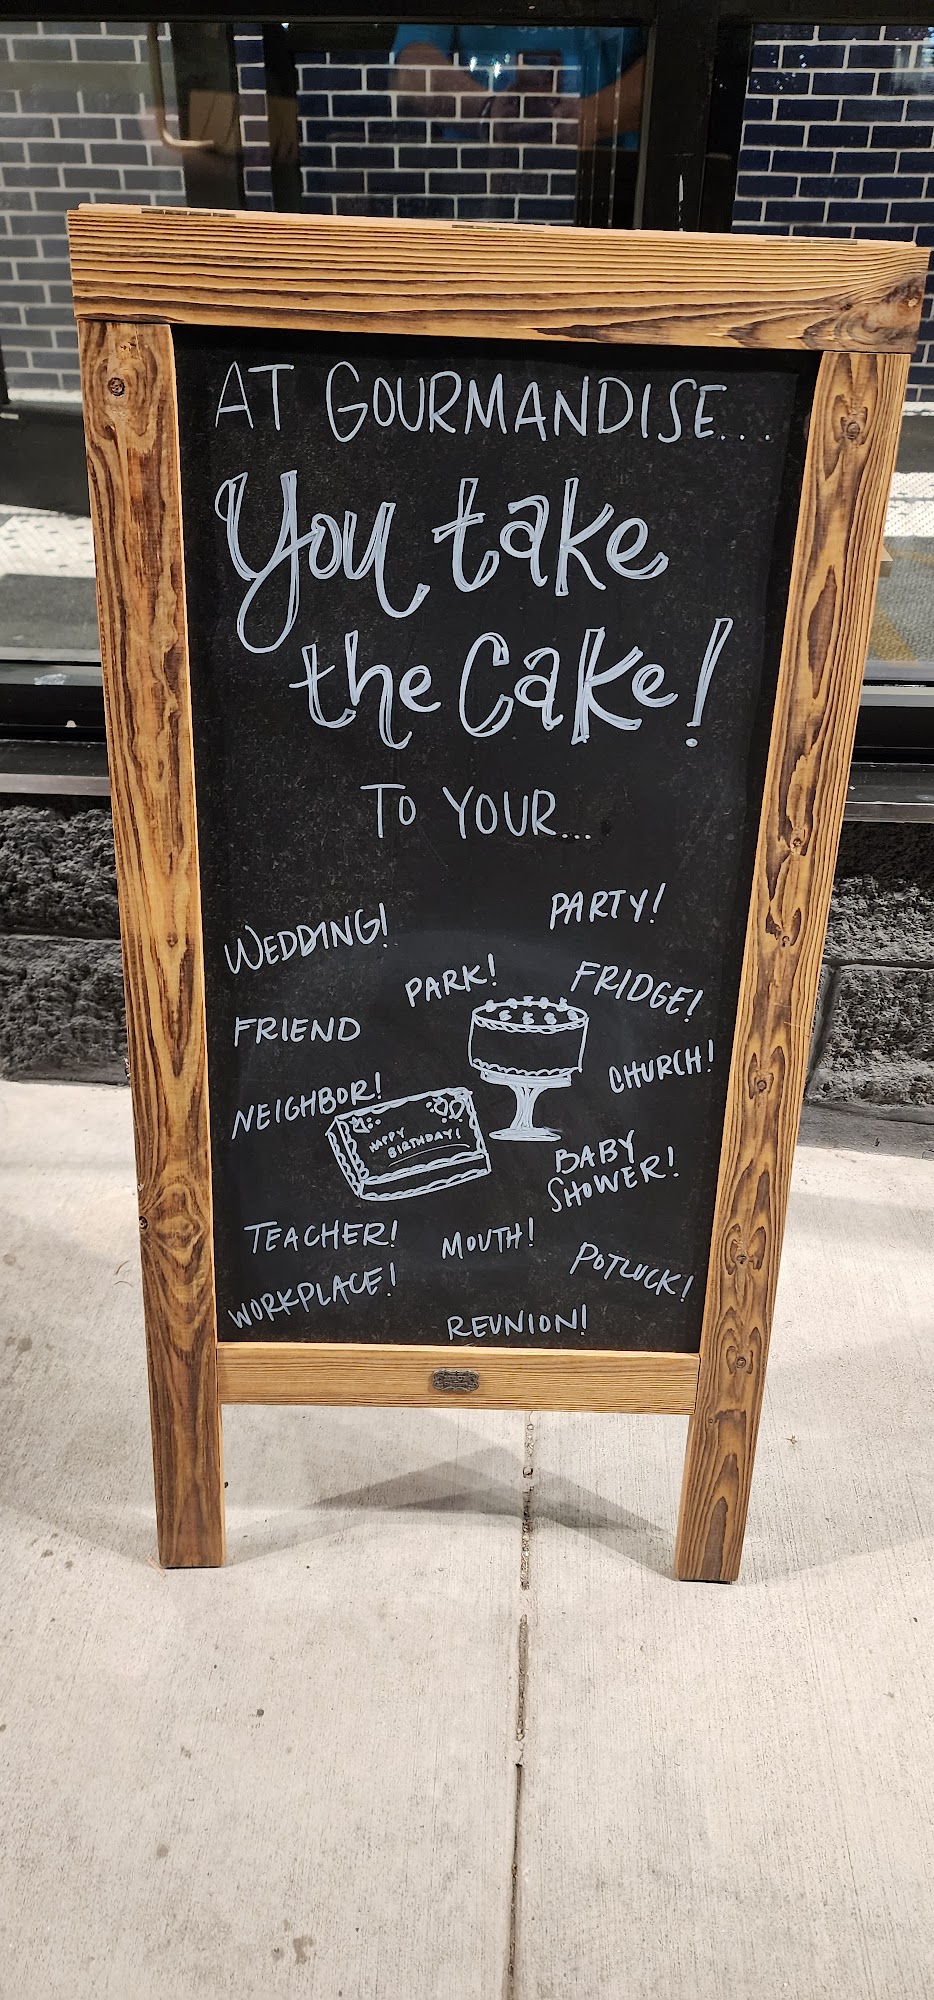 AT GOURMANDISE...
You take
the Cake!
TO YOUR...
PARTY!
WEDDING!
PARK!
FRIDGE!
FRIEND
CHURCH!
NEIGHBOR!
HAPPY
BIRTHDAY!
BABY
SHOWER!
TEACHER!
MOUTH!
POTLUCK!
WORKPLACE!
REUNION!